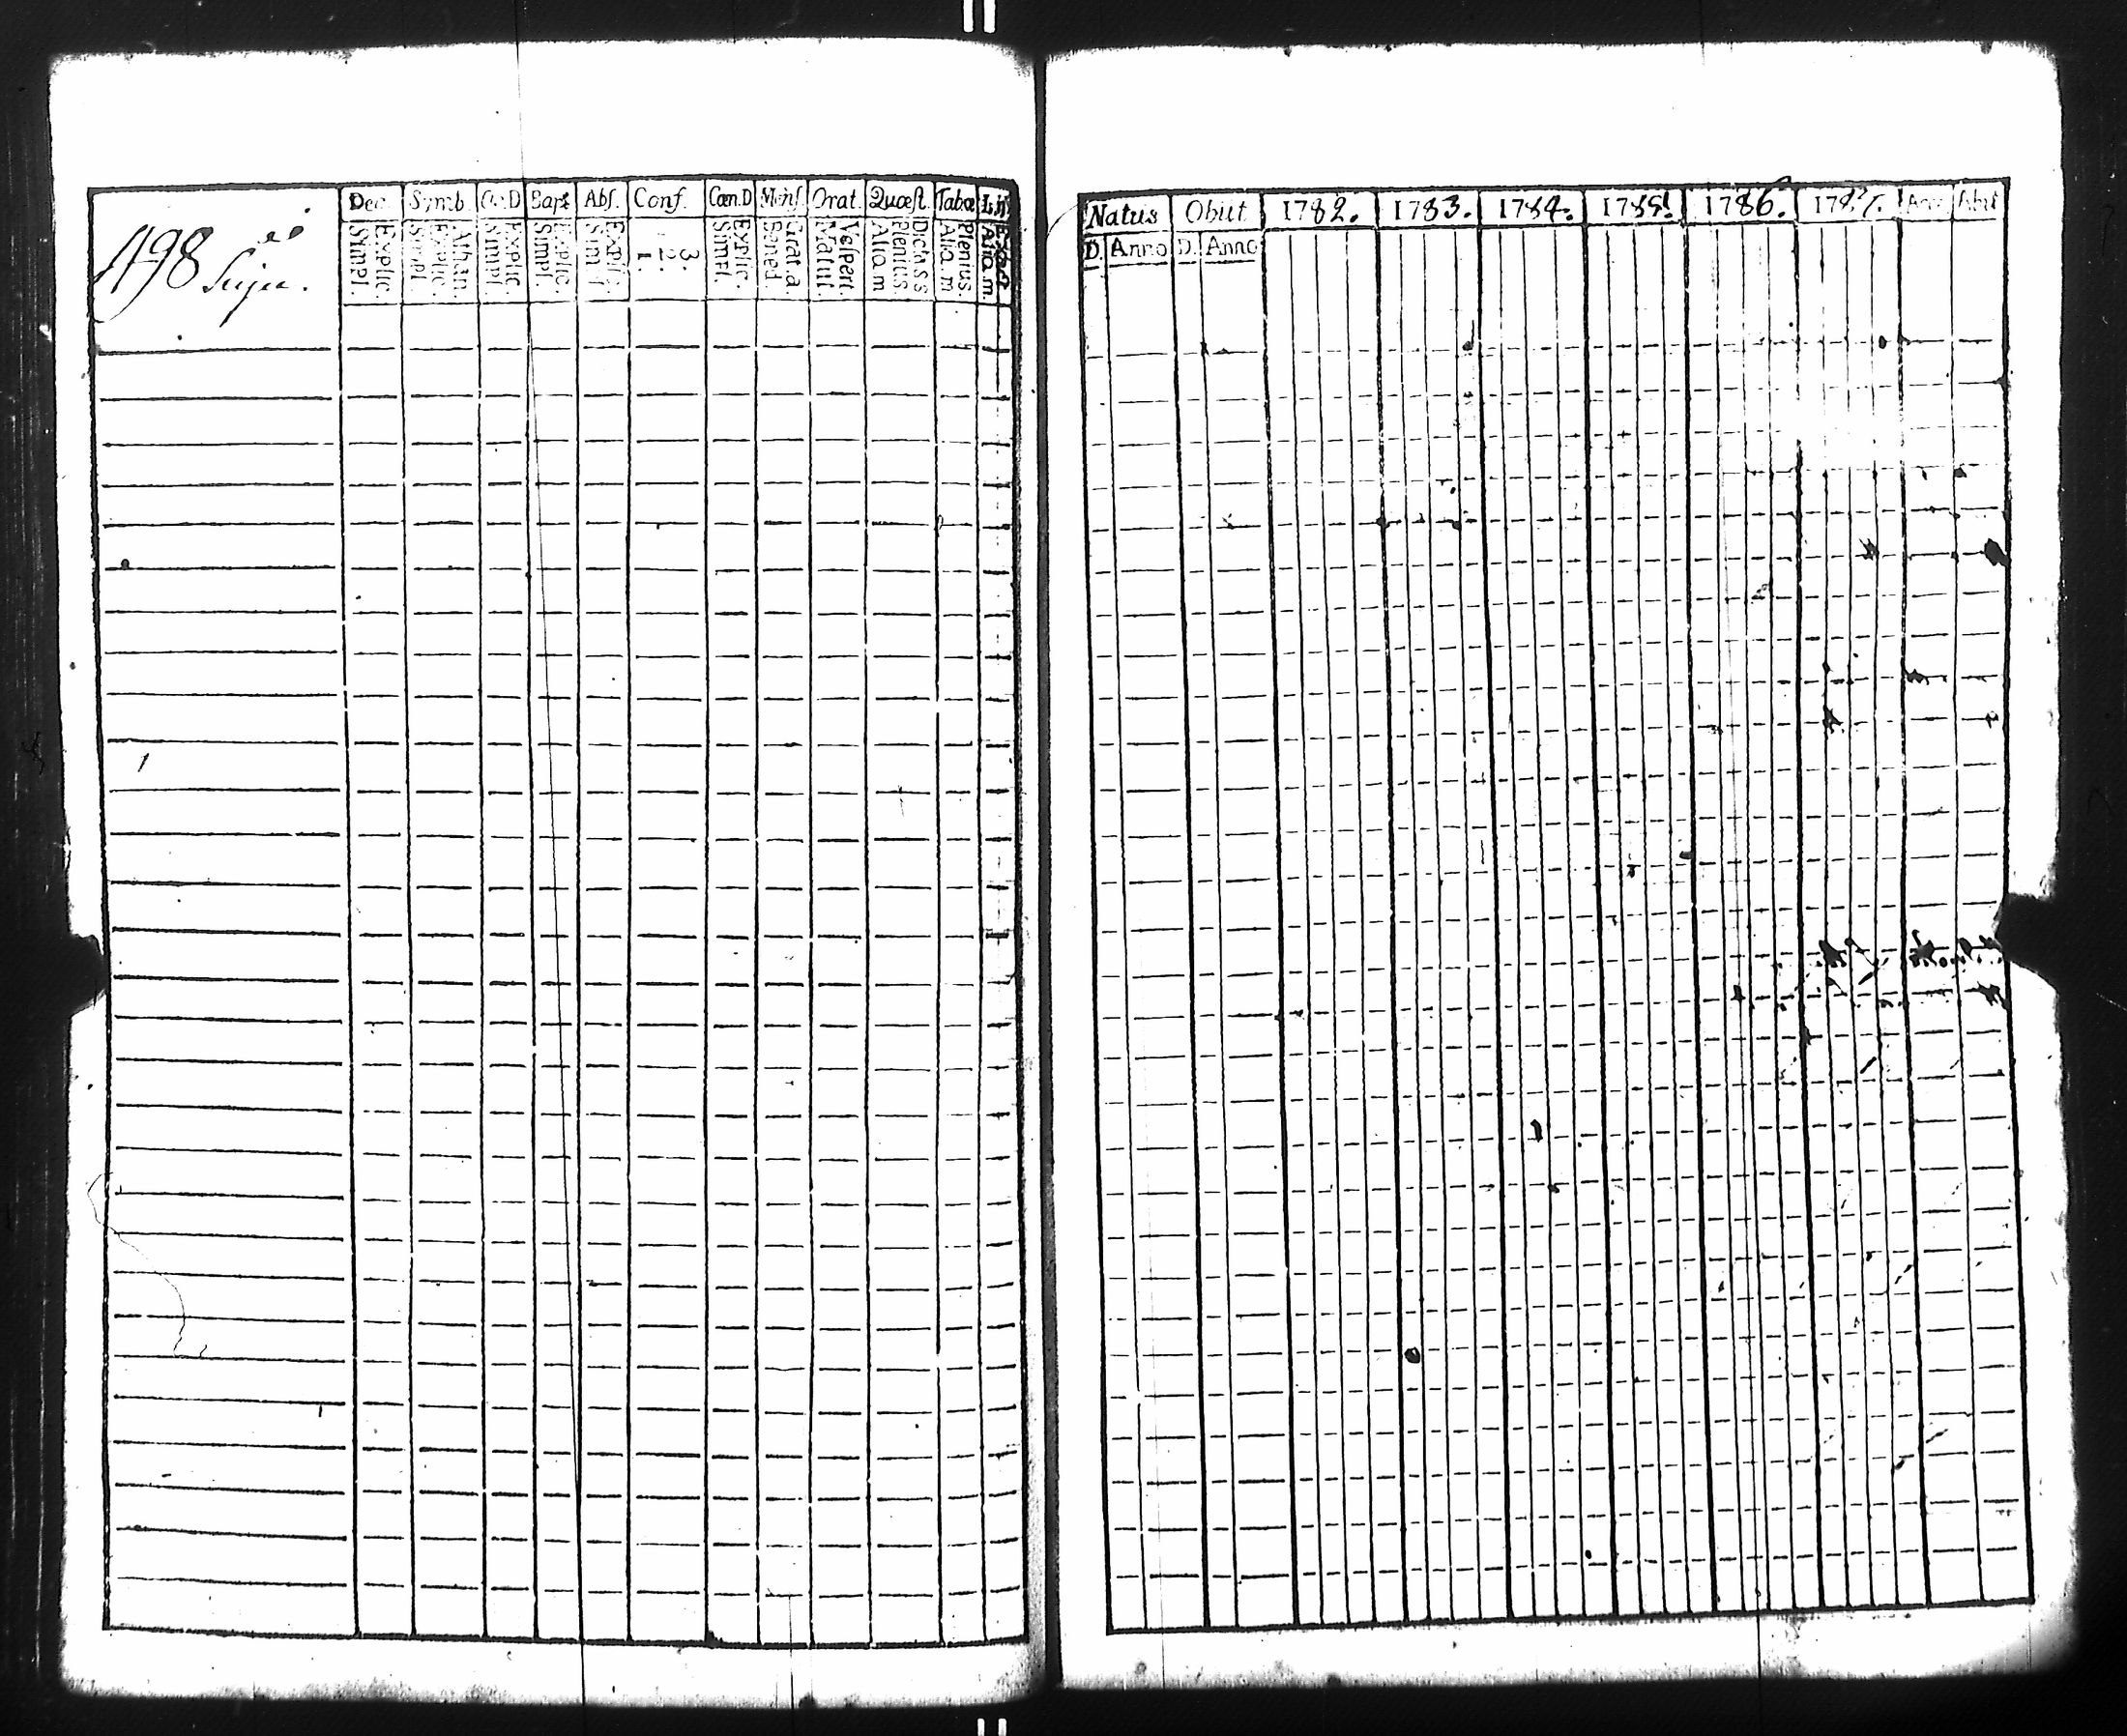 498 Suju.
Dec. Symb. O.D Bapt Abs. Conf. Cœn.D Mens. Orat. Quæst. Tabæ
Explic. Simpl.
Athan. Explic. Simpl.
Explic. Simpl.
Explic. Simpl.
Explic. Simpl.
3. 2. 1.
Explic. Simpl.
Grat.a Bened.
Vespert. Matut.
Dicta s s Plenius. Alia m
Plenius. Alia m
Alia m.
Natus Obiit 1782. 1783. 1784. 1785. 1786. 1787. Acc. Abiit
D. Anno D. Anno